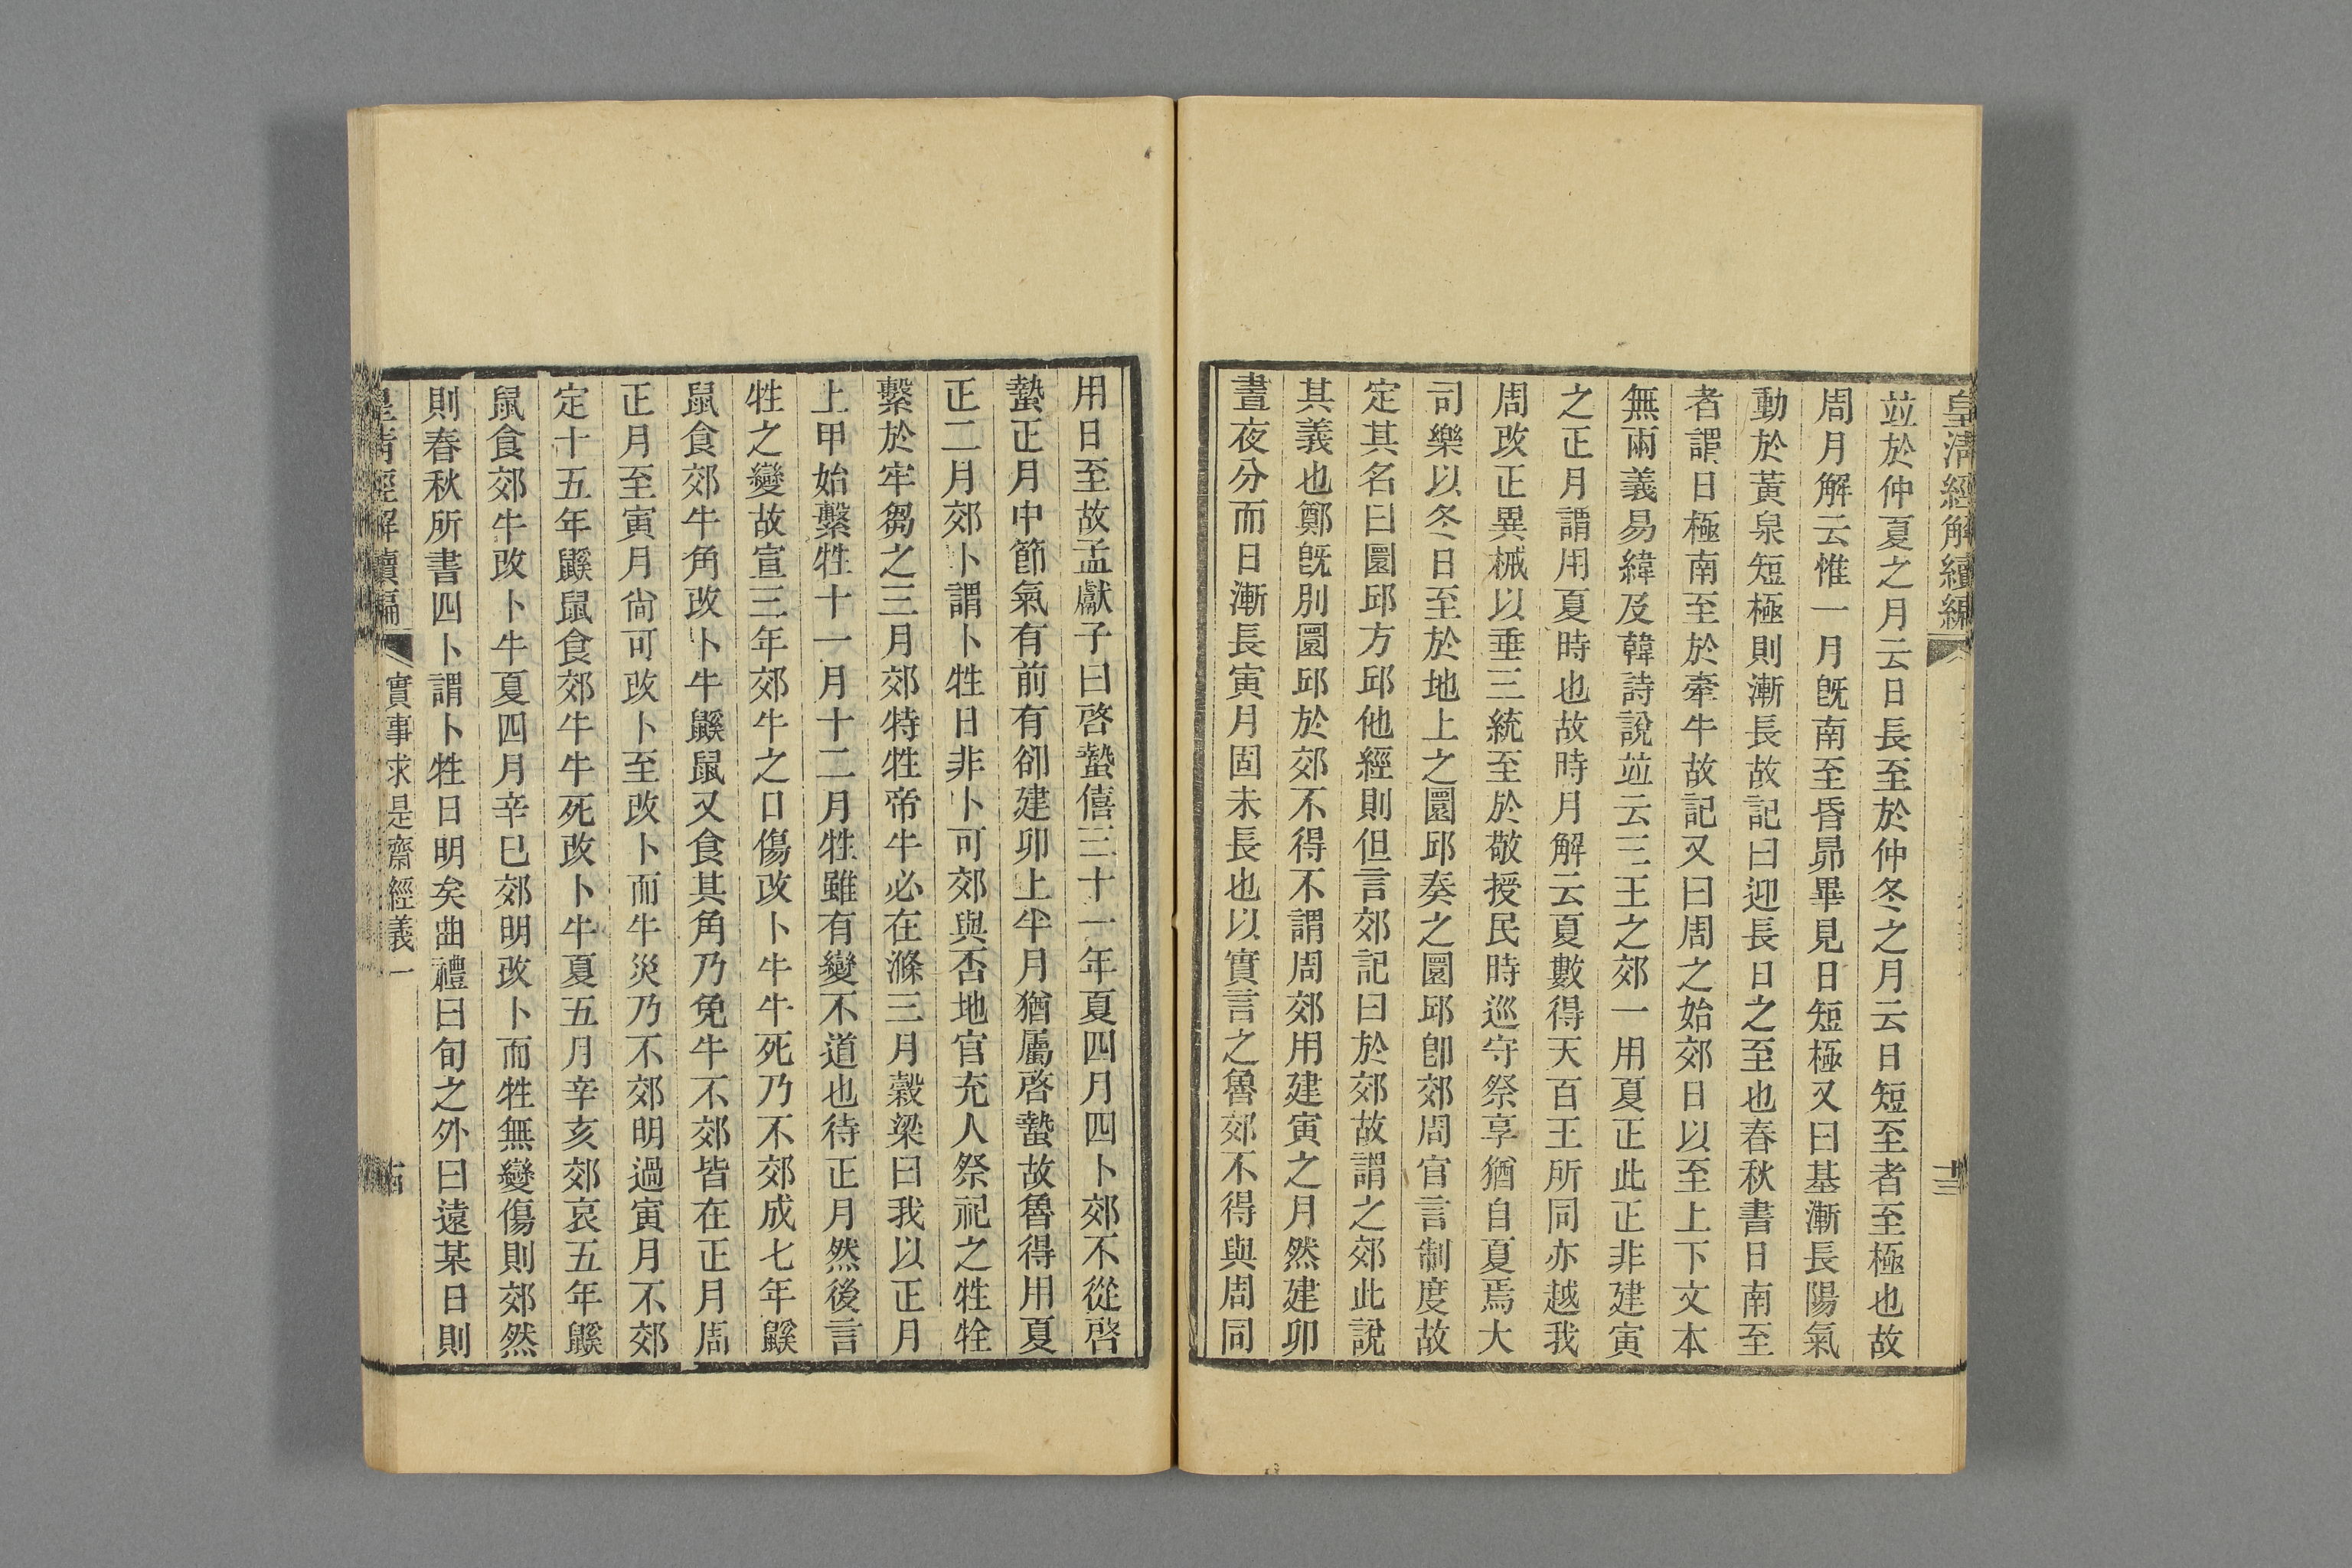 皇清經解續編
十三
並於仲夏之月云日長至於仲冬之月云日短至者至極也故
周月解云惟一月旣南至昏昴畢見日短極又曰基漸長陽氣
動於黃泉短極則漸長故記曰迎長日之至也春秋書日南至
者謂日極南至於牽牛故記又曰周之始郊日以至上下文本
無兩義易緯及韓詩說並云三王之郊一用夏正此正非建寅
之正月謂用夏時也故時月解云夏數得天百王所同亦越我
周改正異械以垂三統至於敬授民時巡守祭享猶自夏焉大
司樂以冬日至於地上之圜邱奏之圜邱卽郊周官言制度故
定其名曰圜邱方邱他經則但言郊記曰於郊故謂之郊此說
其義也鄭旣別圜邱於郊不得不謂周郊用建寅之月然建卯
晝夜分而日漸長寅月固未長也以實言之魯郊不得與周同
用日至故孟獻子曰啓蟄僖三十一年夏四月四卜郊不從啓
蟄正月中節氣有前有卻建卯上半月猶屬啓蟄故魯得用夏
正二月郊卜謂卜牲日非卜可郊與否地官充人祭祀之牲牷
繫於牢芻之三月郊特牲帝牛必在滌三月穀梁曰我以正月
上甲始繫牲十一月十二月牲雖有變不道也待正月然後言
牲之變故宣三年郊牛之口傷改卜牛牛死乃不郊成七年鼷
鼠食郊牛角改卜牛鼷鼠又食其角乃免牛不郊皆在正月周
正月至寅月尙可改卜至改卜而牛災乃不郊明過寅月不郊
定十五年鼷鼠食郊牛牛死改卜牛夏五月辛亥郊哀五年鼷
鼠食郊牛改卜牛夏四月辛巳郊明改卜而牲無變傷則郊然
則春秋所書四卜謂卜牲日明矣曲禮曰旬之外曰遠某日則
皇清經解續編
實事求是齋經義一
十四